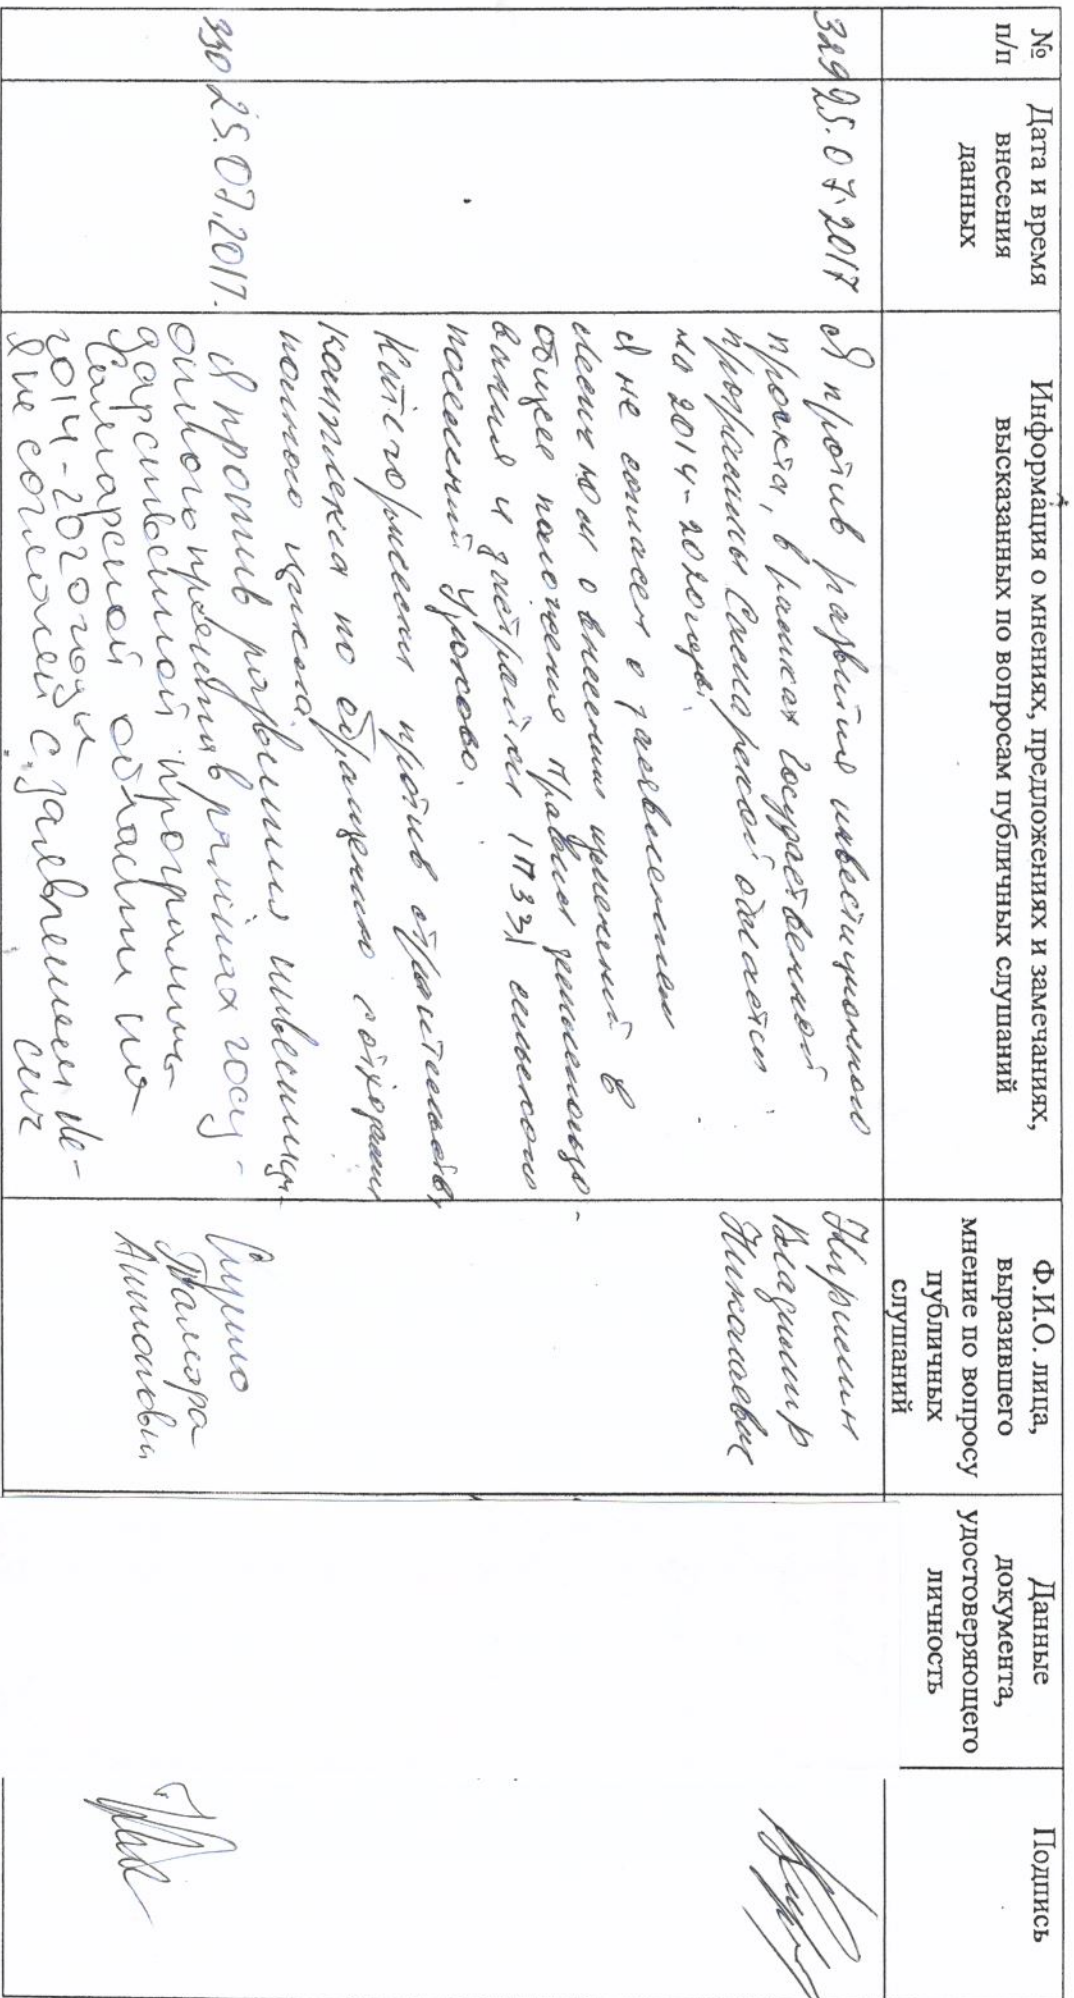 №
п/п
Дата и время
внесения
данных
Информация о мнениях, предложениях и замечаниях,
высказанных по вопросам публичных слушаний
Ф.И.О. лица,
выразившего
мнение по вопросу
публичных
слушаний
Данные
документа,
удостоверяющего
личность
Подпись
329 25.07.2017
Я против развития инвестиционного
проекта, в рамках государственной
программы Самарской области
на 2014-2020 годы.
Я не согласен с заявлением
о внесении изменений в
общее положения Правил
и застройки (ПЗЗ) сельского
поселений Узюково.
Категорически против строительства
комплекса по обращению с отходами
Владимир
Николаевич
330 25.07.2017.
Я против развития инвестицион-
ного проекта в рамках госу-
дарственной программы
Самарской области на
2014-2020 годы
Я не согласен с заявлением